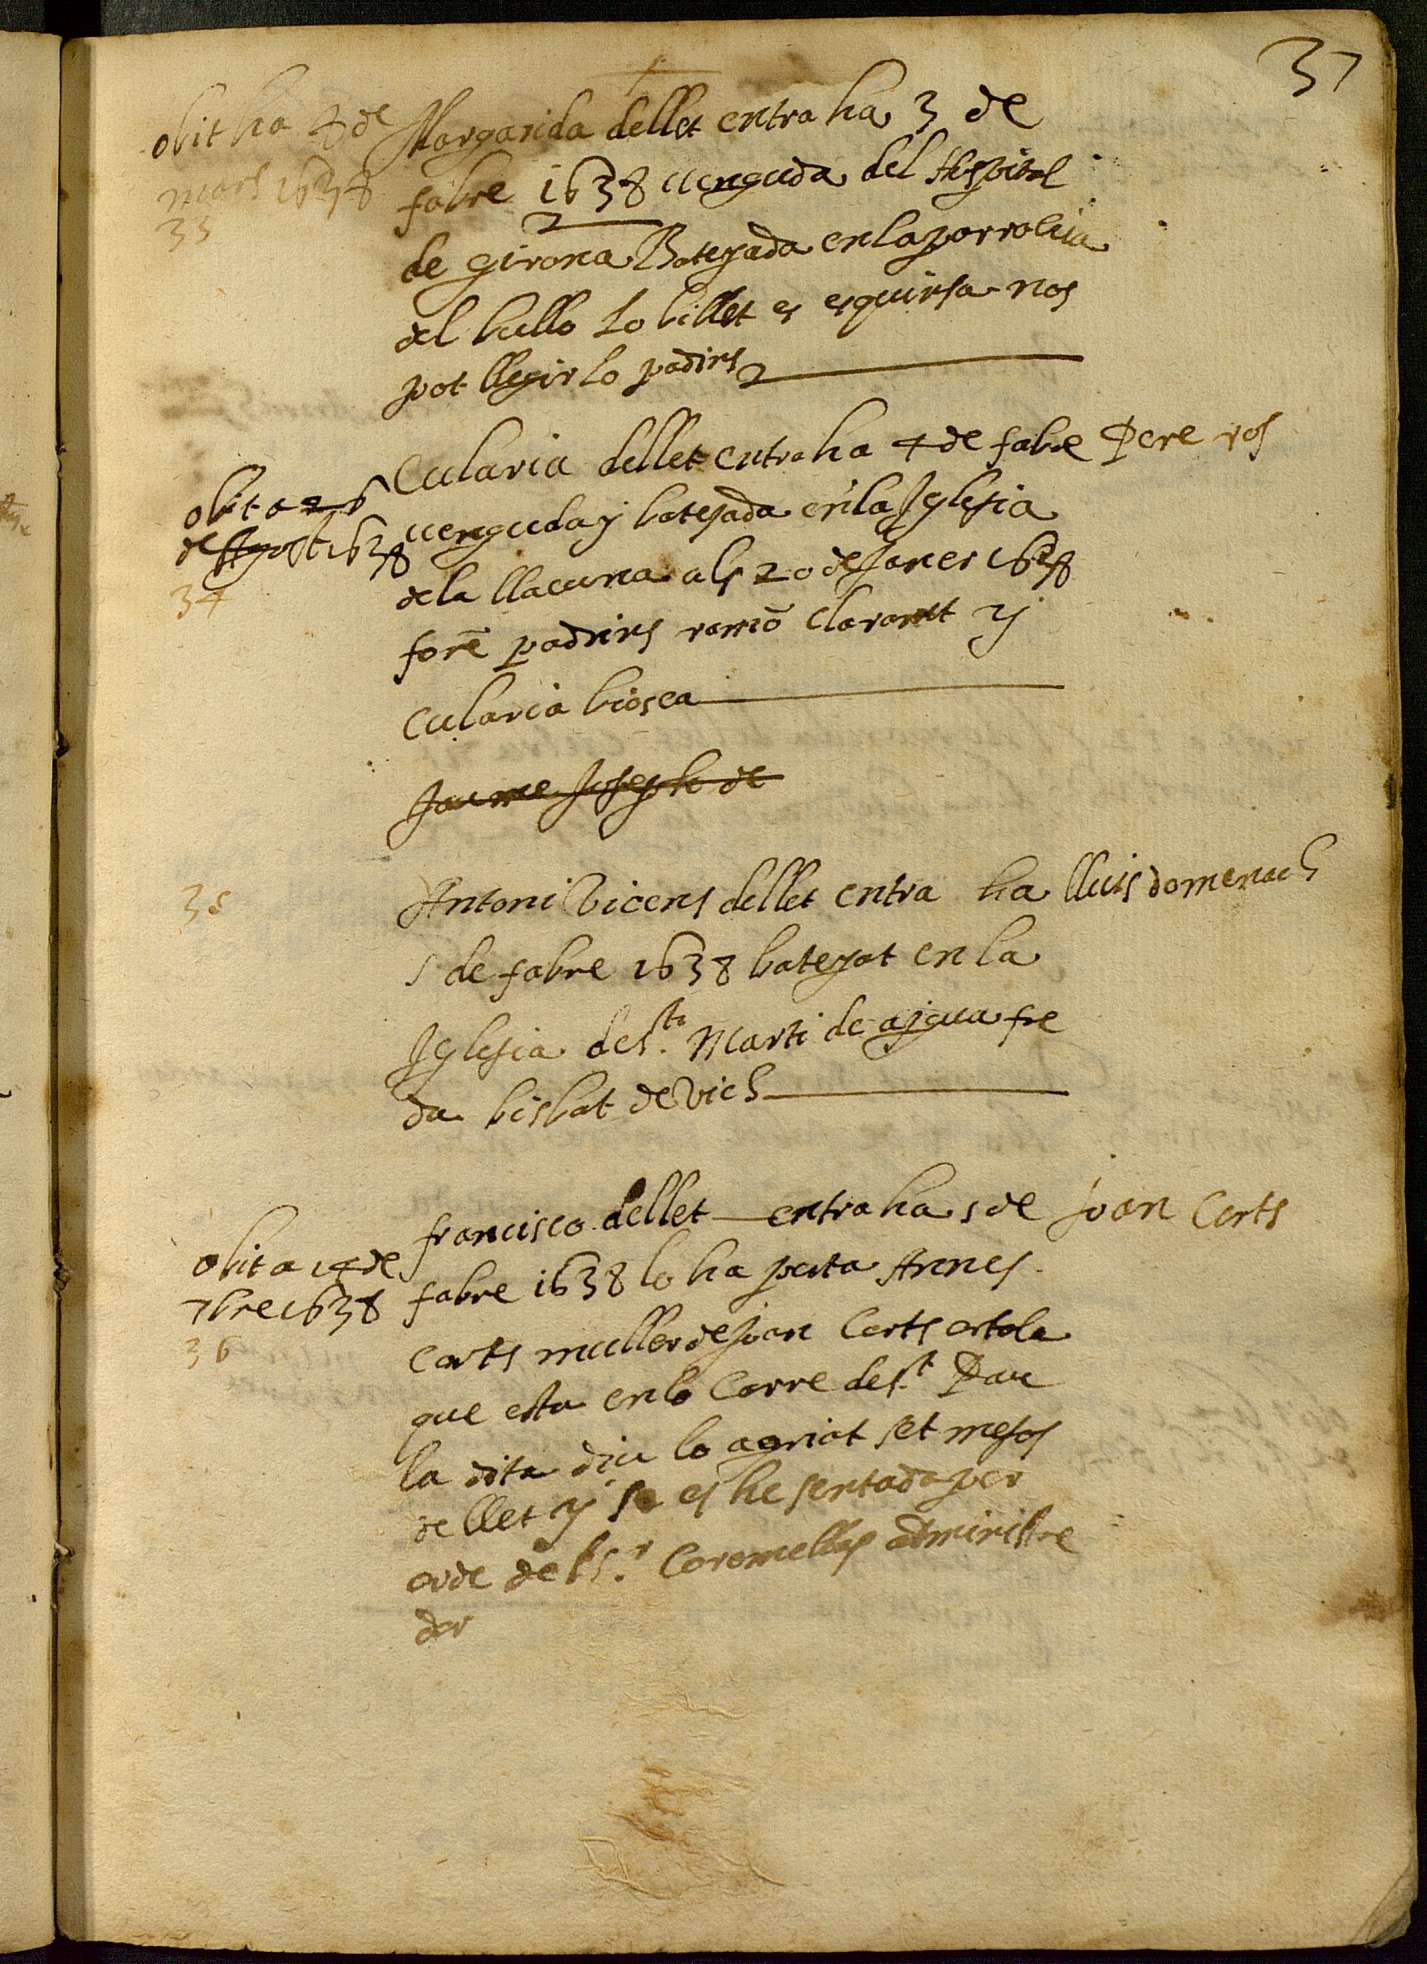 37
obit ha 4 de
mars 1638
33
Margarida dellet entra ha 3 de
fabre 1638 uenguda del Hospital
de girona Batejada en la parrochia
del bullo Lo billet es esquinsa nos
pot llegir lo padins
obit a 26
de Agost 1638
34
Eularia dellet entra ha 4 de fabre Pere ros
uenguda y batejada en la Iglesia
de la llacuna als 20 de Janer 1638
forē padrins ramō claramt y
Eularia biosca
Jaume Joseph de
35
Antoni Vicens dellet entra ha lluis domenach
5 de fabre 1638 batejat en la
Iglesia de st. Marti de aigua fre
da bisbat de Vich
obit a 14 de
7bre 1638
36
francisco dellet entra ha 5 de Joan Corts
fabre 1638 lo ha porta Annes
Corts muller de Joan Corts ortola
que esta en lo Carre de st. Pau
la dita diu lo a criat set mesos
de llet y se es he sentada per
orde del sr. Coromellas administre
dor